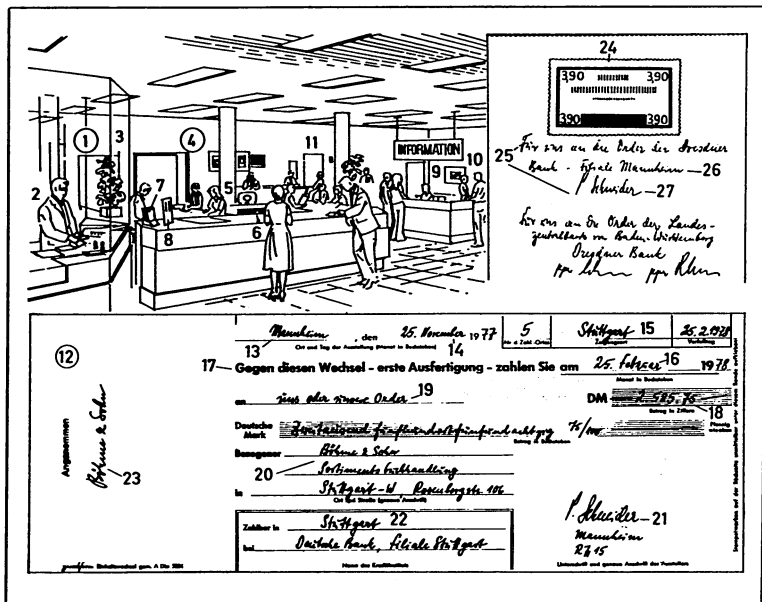 1
3
2
4
11
7
5
8
6
INFORMATION
9
10
24
3,90 3,90
3,90 3,90
25
Für uns an die Order der Dresdner
Bank - Filiale Mannheim — 26
P. Schneider — 27
Für uns an die Order der Landes-
zentralbank von Baden-Württemberg
Dresdner Bank
ppa ppa
12
Angenommen
Böhme & Sohn
23
Mannheim, den 25. November 1977
13 Ort und Tag der Ausstellung (Monat in Buchstaben) 14
5
Nr. d. Zahl.-Ortes
Stuttgart 15
Zahlungsort
25.2.1978
Verfalltag
17 Gegen diesen Wechsel - erste Ausfertigung - zahlen Sie am 25. Februar 16 1978
Monat in Buchstaben
an uns oder unsere Order 19 DM 2.585,75
Betrag in Ziffern 18
Deutsche Mark Zweitausendfünfhundertfünfundachtzig 75/100
Betrag in Buchstaben
Pfennig
Bezogener Böhme & Sohn
20 Sortimentsbuchhandlung
in Stuttgart-W, Rosenbergstr. 106
Ort und Straße (genaue Anschrift)
Zahlbar in Stuttgart 22
bei Deutsche Bank, Filiale Stuttgart
Name des Kreditinstituts
P. Schneider — 21
Mannheim
R7 15
Unterschrift und genaue Anschrift des Ausstellers
Einheitswechsel gem. A Din